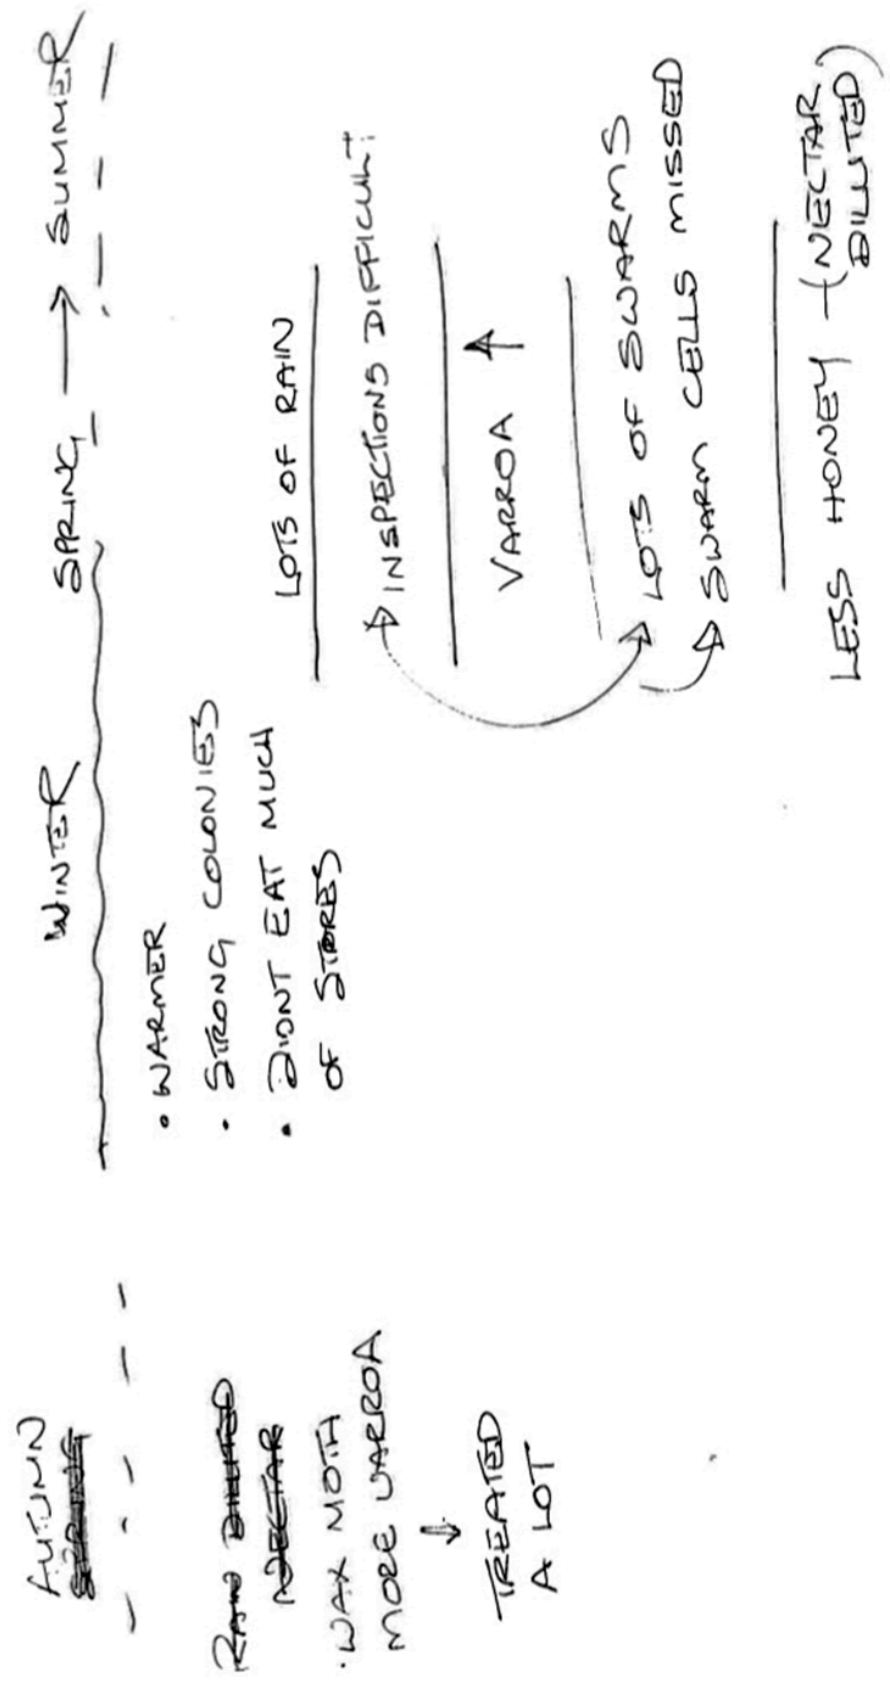 AUTUMN
SPRING
RAIN DILUTED
NECTAR
· WAX MOTH
MORE VARROA
↓
TREATED
A LOT
WINTER
· WARMER
· STRONG COLONIES
· DIDNT EAT MUCH
OF STORES
SPRING → SUMMER
LOTS OF RAIN
INSPECTIONS DIFFICULT
VARROA ↑
LOTS OF SWARMS
SWARM CELLS MISSED
LESS HONEY - (NECTAR
DILUTED)